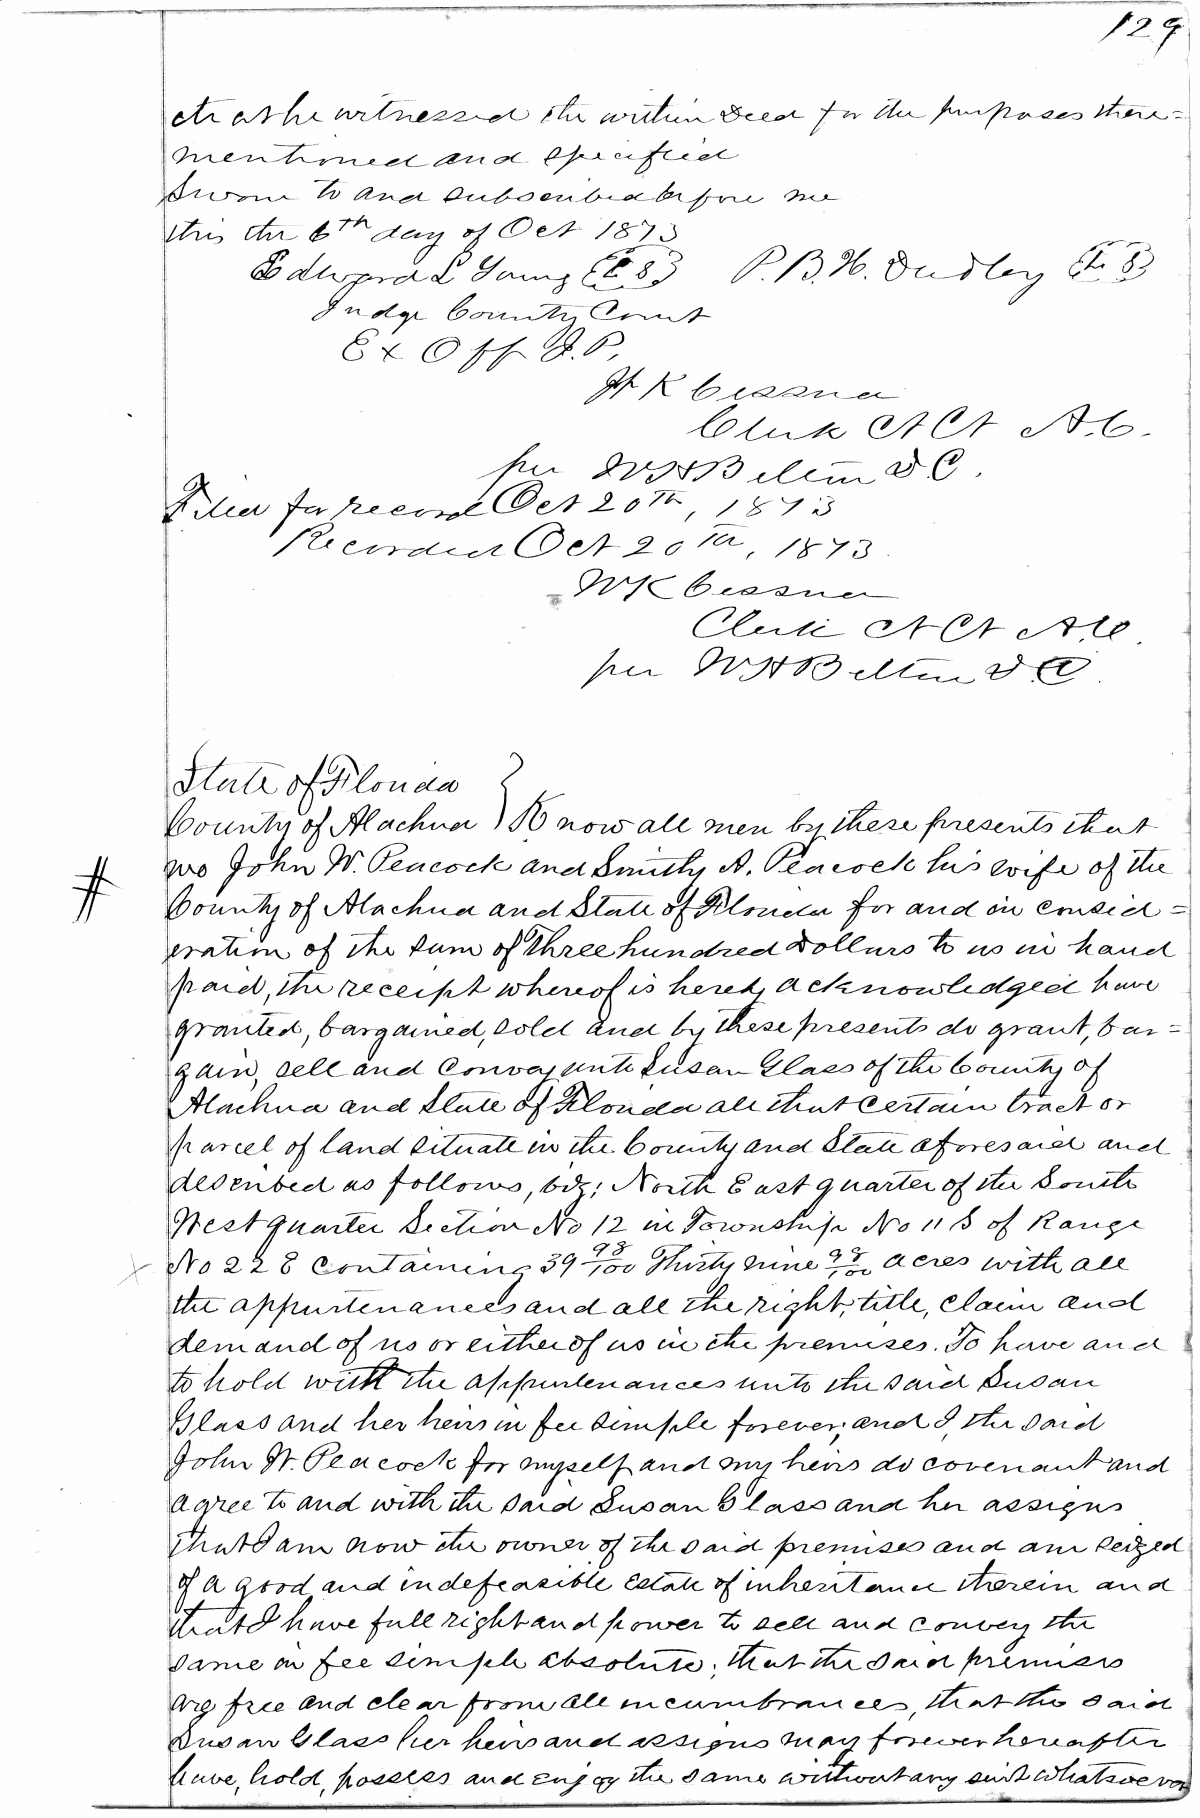 129
that he witnessed the within Deed for the purposes there=
mentioned and specified
Sworn to and subscribed before me
this the 6th day of Oct 1873
Edward L Young {L S} P. B. H. Dudley {L S}
Judge County Court
Ex Off J. P.
W K Cessna
Clerk Ct Ct A. C.
per W H Belton D C.
Filed for record Oct 20th, 1873
Recorded Oct 20th, 1873.
W K Cessna
Clerk Ct Ct A C.
per W H Belton D C.
State of Florida }
County of Alachua } Know all men by these presents that
# we John W. Peacock and Smithy A. Peacock his wife of the
County of Alachua and State of Florida for and in consid=
eration of the sum of Three hundred Dollars to us in hand
paid, the receipt whereof is hereby acknowledged have
granted, bargained, sold and by these presents do grant, bar=
gain, sell and convey unto Susan Glass of the County of
Alachua and State of Florida all that certain tract or
parcel of land situate in the County and State aforesaid and
described as follows, viz: North East quarter of the South
West quarter Section No 12 in Township No 11 S of Range
x No 22 E containing 39 98/100 Thirty nine 98/100 acres with all
the appurtenances and all the right, title, claim and
demand of us or either of us in the premises. To have and
to hold with the appurtenances unto the said Susan
Glass and her heirs in fee simple forever; and I, the said
John W. Peacock for myself and my heirs do covenant and
agree to and with the said Susan Glass and her assigns
that I am now the owner of the said premises and am seized
of a good and indefeasible Estate of inheritance therein and
that I have full right and power to sell and convey the
same in fee simple absolute; that the said premises
are free and clear from all incumbrances, that the said
Susan Glass her heirs and assigns may forever hereafter
have, hold, possess and enjoy the same without any suit whatsoever